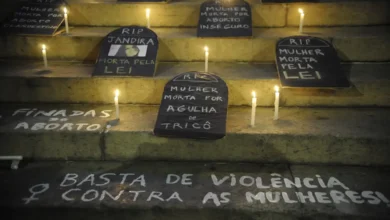 MULHER
MORTA POR
ABORTO
INSEGURO
RIP
JANDIRA
MORTA PELA
LEI
RIP
MULHER
MORTA PELA
LEI
RIP
MULHER
MORTA POR
AGULHA
DE
TRICÔ
FINADAS
DO
ABORTO:
BASTA DE VIOLÊNCIA
♀ CONTRA AS MULHERES!